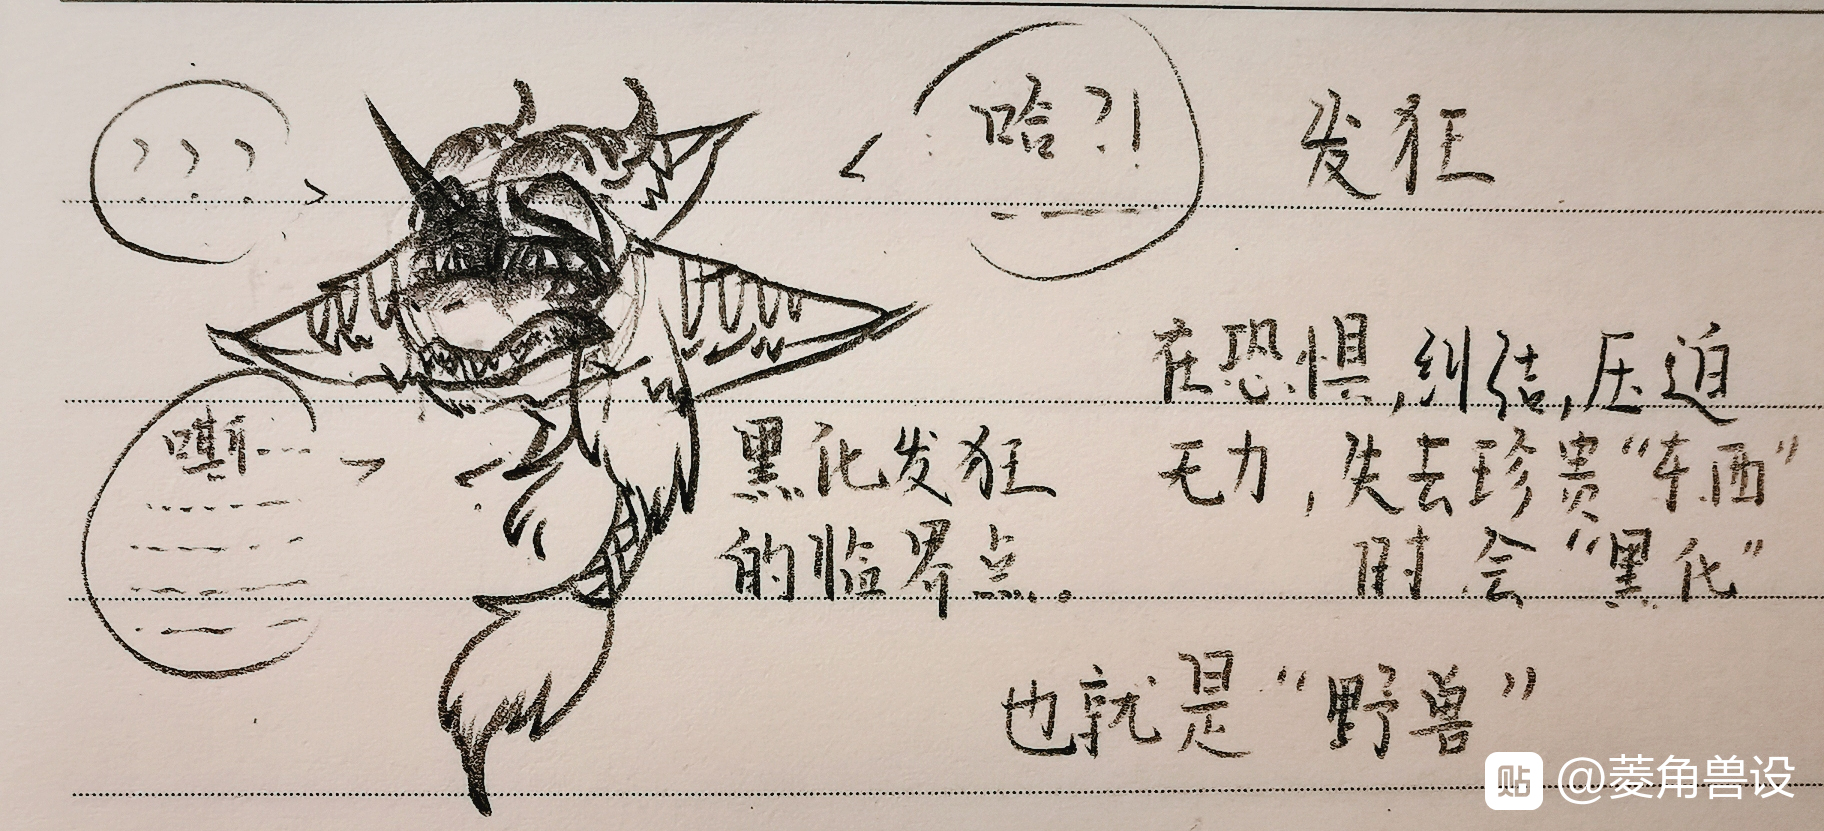 ？？？
哈？！
发狂
在恐惧，纠结，压迫
无力，失去珍贵“东西”
时会“黑化”
也就是“野兽”
嘶
黑化发狂
的临界点。
贴 @菱角兽设